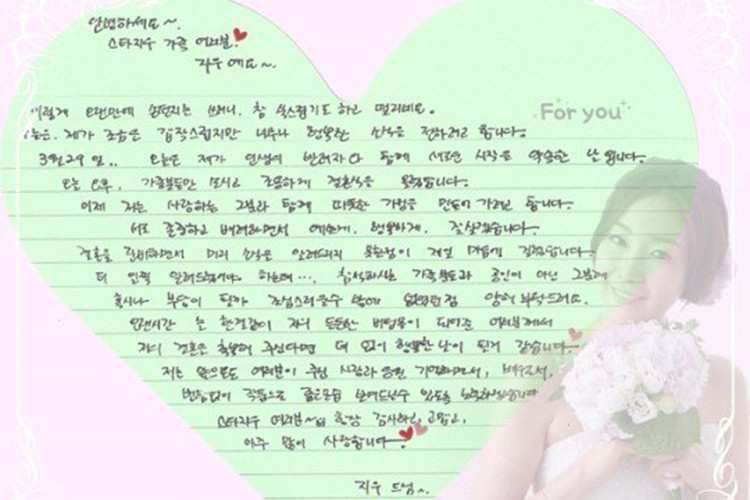 안녕하세요~.
스타지우 가족 여러분.
지우예요~.
이렇게 오랜만에 손편지를 쓰려니, 참 쑥스럽기도 하고 떨리네요.
For you
오늘은, 제가 조금은 갑작스럽지만 너무나 행복한 소식을 전하려고 합니다.
3월 29일.. 오늘은 제가 인생의 반려자와 함께 새로운 시작을 약속한 날입니다.
오늘 오후, 가족분들만 모시고 조용하게 결혼식을 올렸습니다.
이제 저는 사랑하는 그분과 함께 따뜻한 가정을 만들어 가려고 합니다.
서로 존중하고 배려하면서 예쁘게, 행복하게, 잘살겠습니다.
결혼을 준비하면서 미리 소식을 알려드리지 못한점이 제일 마음에 걸렸습니다.
더 일찍 알려드렸어야 하는데..., 참석하시는 가족분들과 공인이 아닌 그분께
혹시나 부담이 될까 조심스러울수 밖에 없었던점 양해 부탁드려요.
오랜시간 늘 한결같이 저의 든든한 버팀목이 되어준 여러분께서
저의 결혼을 축복해 주신다면 더 없이 행복한 날이 될거 같습니다.
저는 앞으로도 여러분이 주신 사랑과 응원 기억하면서, 배우로서,
변함없이 작품으로 좋은모습 보여드릴수 있도록 노력하겠습니다
스타지우 여러분~ 항상 감사하고, 고맙고,
아주 많이 사랑합니다.
지우 드림~.